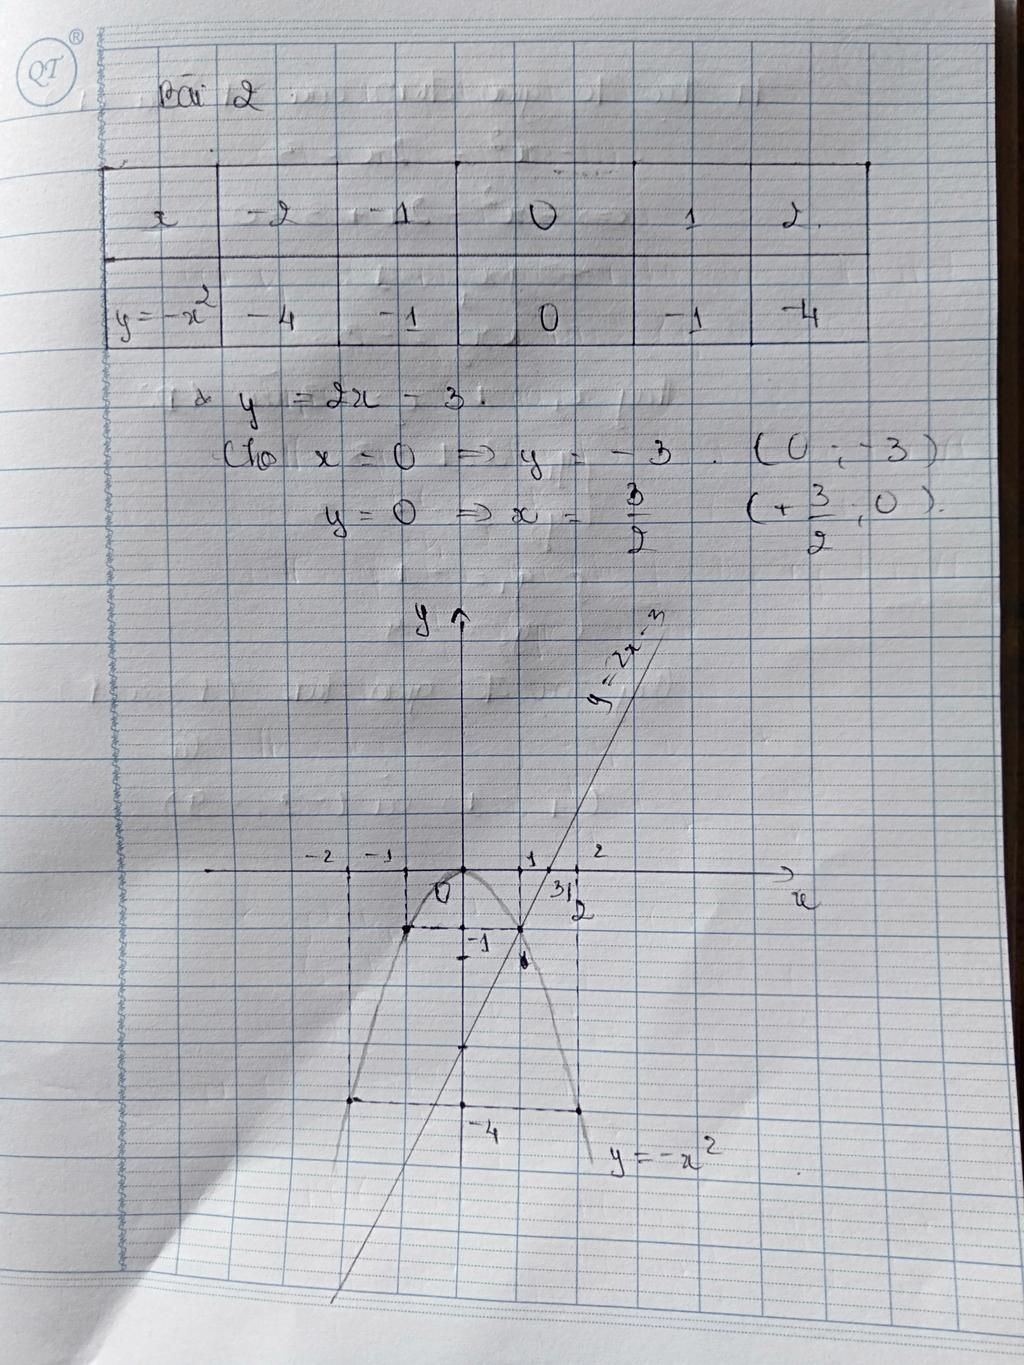 QT ®
Bài 2
x -2 -1 0 1 2
y = -x² -4 -1 0 -1 -4
* y = 2x - 3.
Cho x = 0 ⇒ y = -3. (0; -3)
y = 0 ⇒ x = 3/2 (+3/2; 0).
y
y = 2x - 3
-2 -1 1 2
0 3/2 x
-1
-4
y = -x²